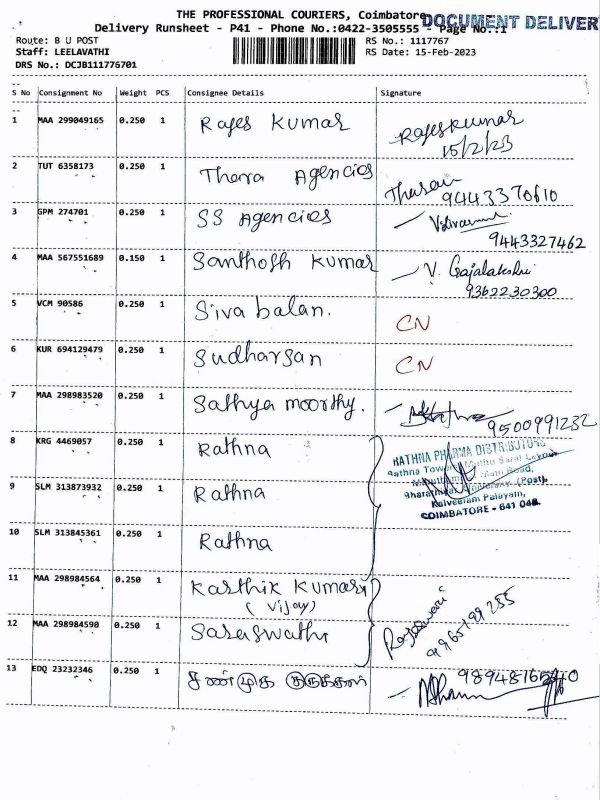 THE PROFESSIONAL COURIERS, Coimbatore
DOCUMENT DELIVER
Delivery Runsheet - P41 - Phone No.:0422-3505555 - Page No.:1
Route: B U POST
RS No.: 1117767
Staff: LEELAVATHI
RS Date: 15-Feb-2023
DRS No.: DCJB111776701
S No Consignment No Weight PCS Consignee Details Signature
1 MAA 299049165 0.250 1 Rajes Kumar Rajeskumar
15/2/23
2 TUT 6358173 0.250 1 Thara Agencies
9443370610
3 GPM 274701 0.250 1 SS Agencies
9443327462
4 MAA 567551689 0.150 1 Santhosh Kumar V. Gajalakshmi
9362230300
5 VCM 90586 0.250 1 Siva balan. CN
6 KUR 694129479 0.250 1 Sudharsan CN
7 MAA 298983520 0.250 1 Sathya moorthy.
9500991232
8 KRG 4469057 0.250 1 Rathna
RATHNA PHARMA DISTRIBUTORS
9 SLM 313873932 0.250 1 Rathna
Kalveeram Palayam,
COIMBATORE - 641 046.
10 SLM 313845361 0.250 1 Rathna
11 MAA 298984564 0.250 1 Karthik Kumar
(Vijay)
12 MAA 298984590 0.250 1 Saraswathi Rajeswari
13 EDQ 23232346 0.250 1 சண்முக